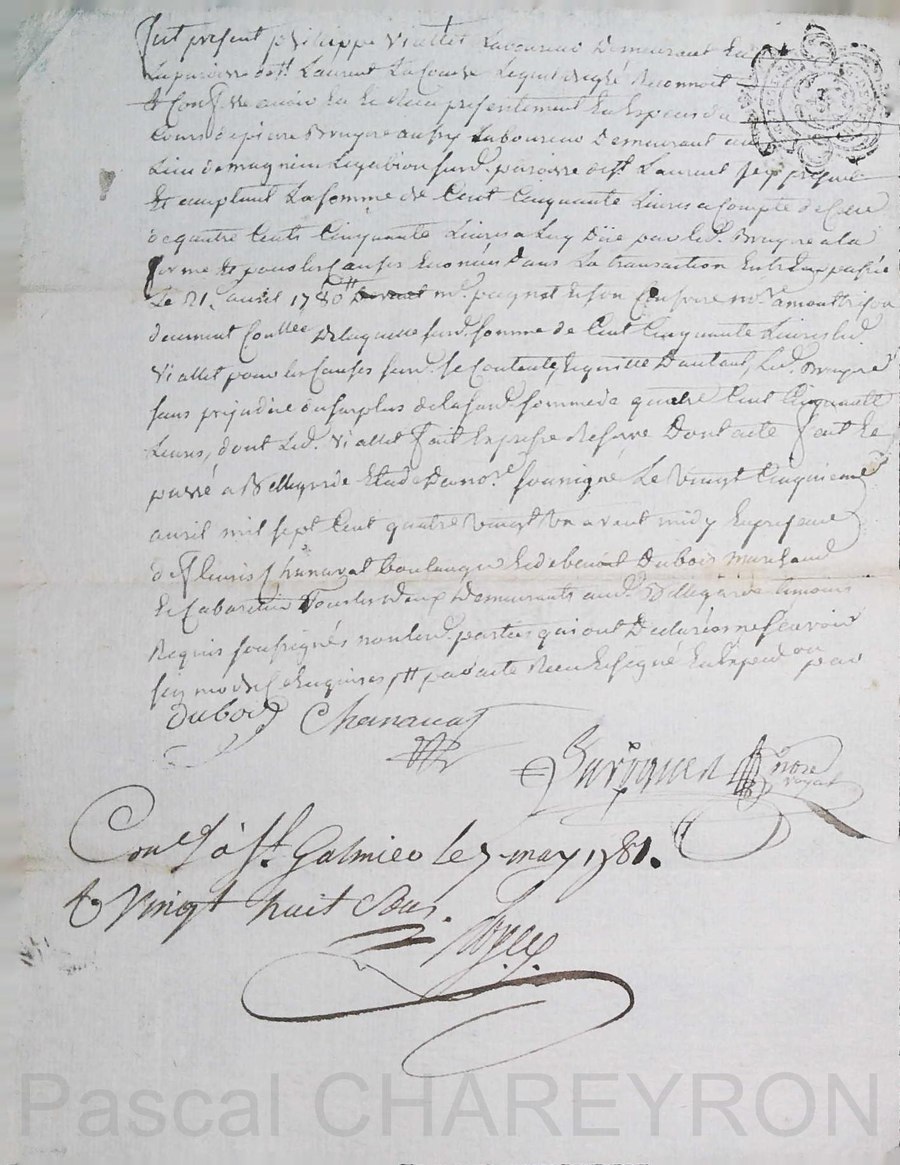 fut present philippe Viallet Laboureur Demeurant En
La paroisse de st. Laurent La Conche Lequel de gré Reconnoit
& Confesse avoir Eu et Receu presentement En Especes du
Cours de pierre Bruyre Laboureur Demeurant au
Lieu de magnieu paroisse de st. Laurent
Et comptant La somme de Cent Cinquante Livres a Compte de Celle
de quatre Cents Cinquante Livres a Luy Düe par led. Bruyre a la
forme & pour les Causes Enoncées Dans La transaction Entr'Eux passée
Le 21. avril 1780 me. pagnot et son Confrere nore. a montbrison
deument Conllee De laquelle surd. somme de Cent Cinquante Livres led.
Viallet pour les Causes surd. se Contente, Equitte D'autant, Led. Bruyre
sans prejudice du surplus de la surd. somme de quatre Cent Cinquante
Livres, dont Led. Viallet fait Expresse Reserve Dont acte fait et
passé a Bellegarde Etude Du nore. soussigné Le Vingt Cinquieme
avril mil sept Cent quatre Vingt Un avant midy En presence
de fleuris Chanavat boulanger et de benoit Dubois marchand
et Cabaretier Tous les deux Demeurants aud. Bellegarde temoins
Requis soussignés non lesd. parties qui ont Declarées ne sçavoir
signer de ce Enquises par acte Receu et signé En Expedon par
Dubois Chanavat
nore
royal
Conllé à st. Galmier le 7 may 1781.
& Vingt huit Sous.
Pascal CHAREYRON